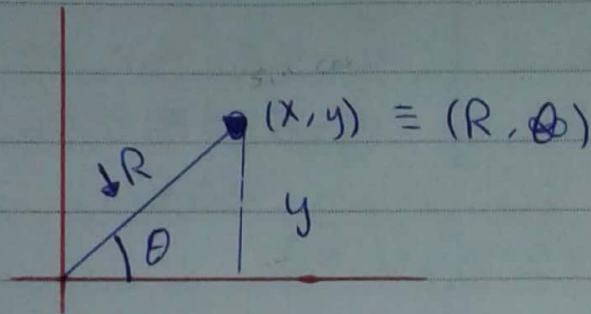 (x, y) ≡ (R, θ)
R
θ
y